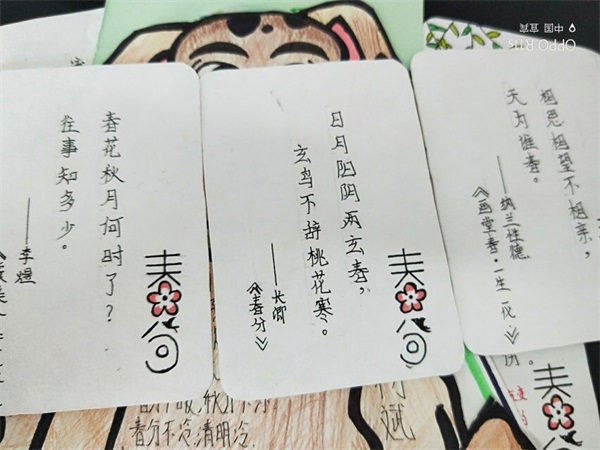 春花秋月何时了?
往事知多少。
——李煜
日月阳阴两玄春,
玄鸟不辞桃花寒。
——长卿
《春分》
春分
相思相望不相亲,
天为谁春。
——纳兰性德
《画堂春·一生一代》
春分不冷清明冷.
OPPO R11s
中国 宜宾